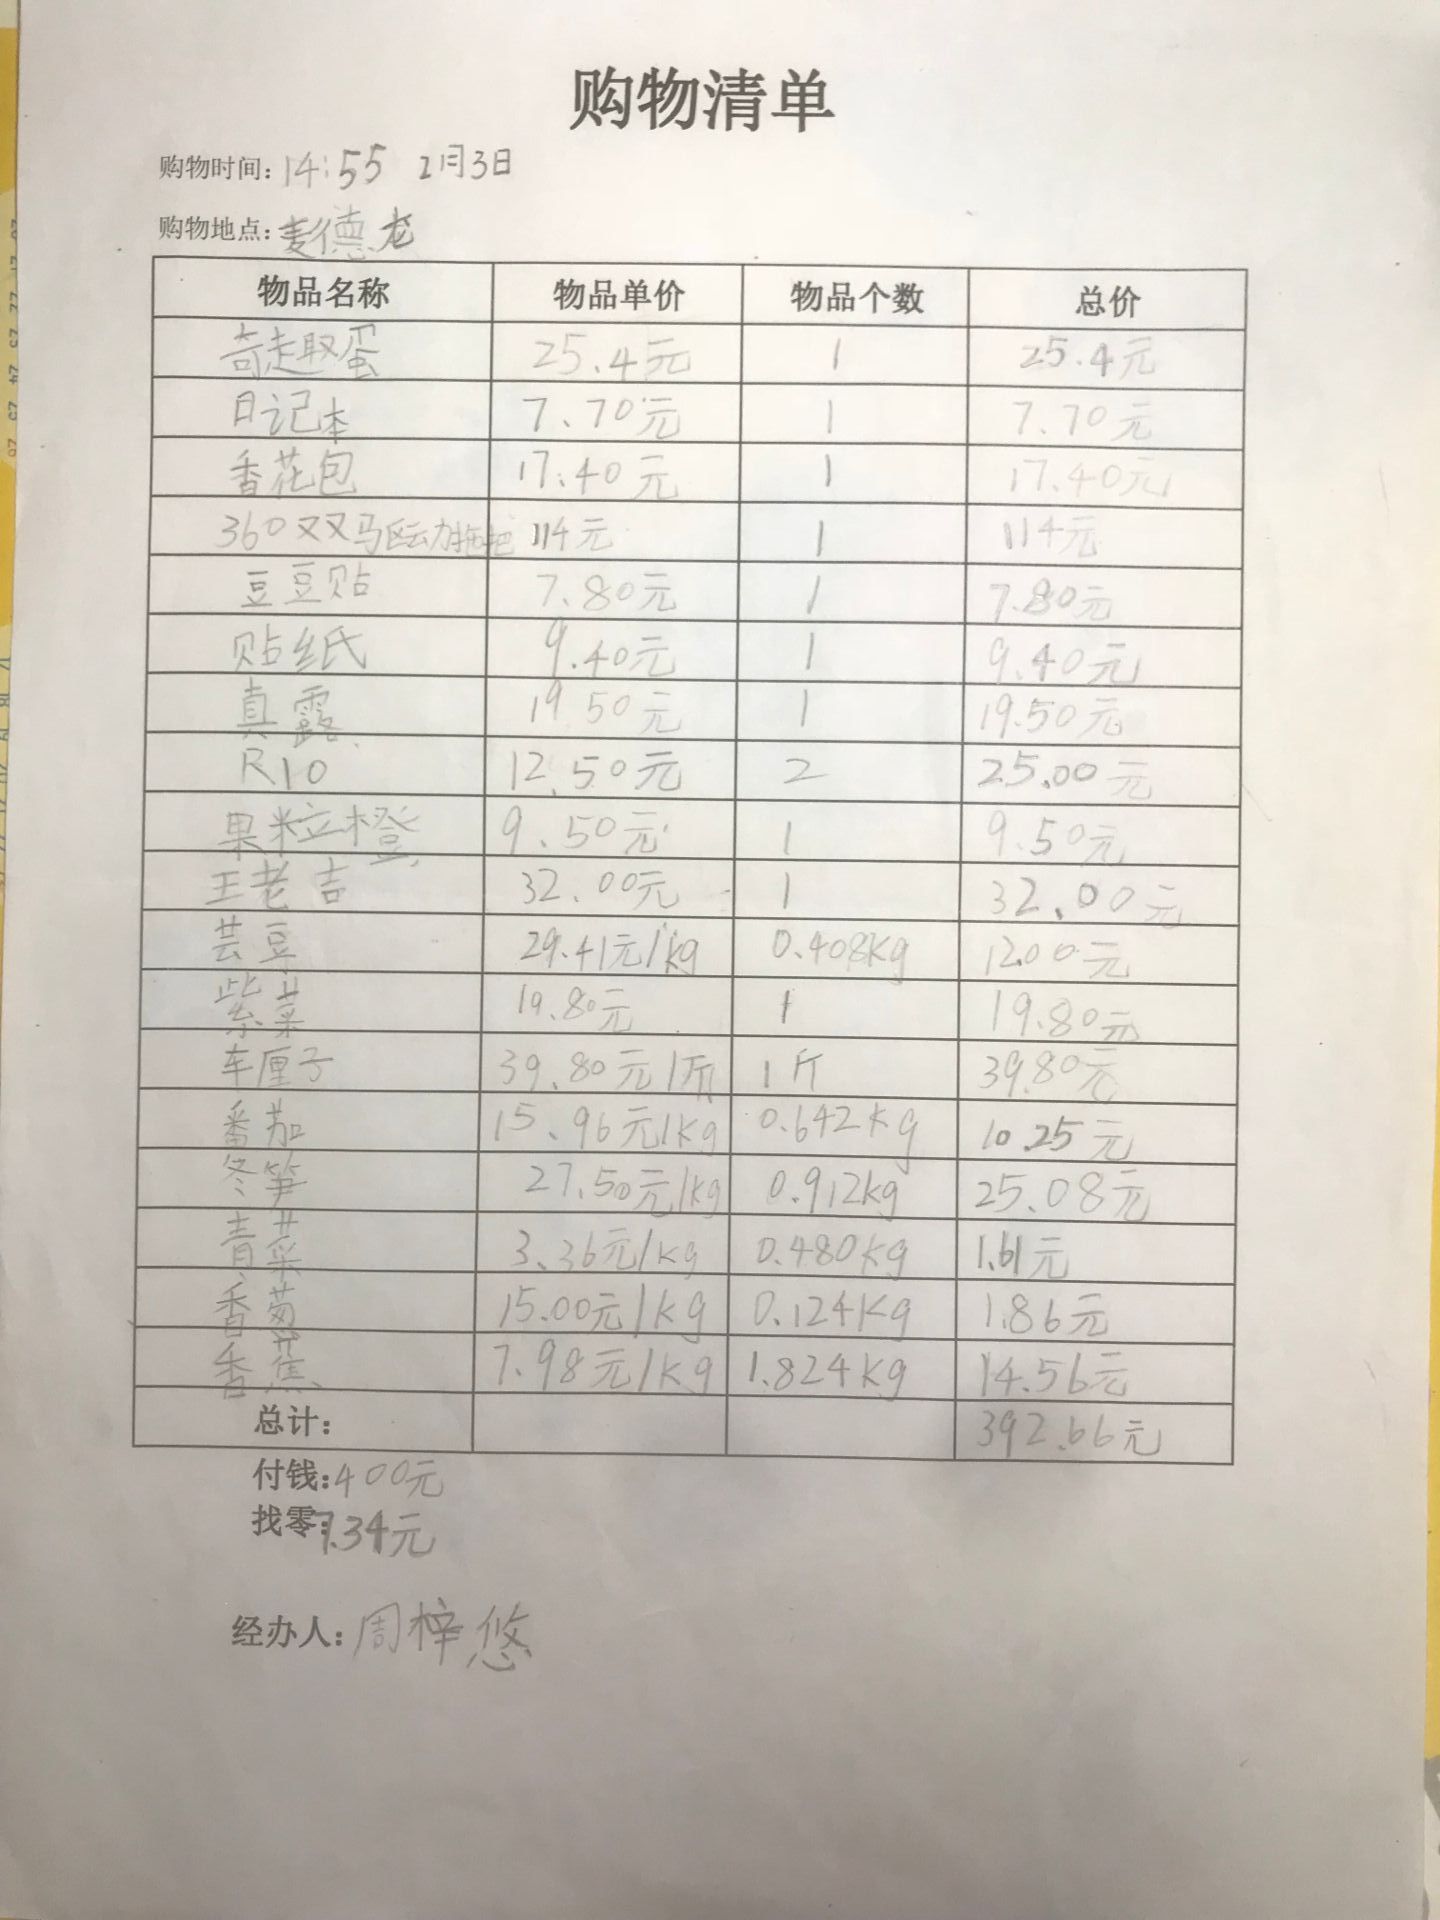 购物清单
购物时间：14:55 2月3日
购物地点：麦德龙
物品名称 物品单价 物品个数 总价
奇趣蛋 25.4元 1 25.4元
日记本 7.70元 1 7.70元
香花包 17.40元 1 17.40元
360双双马区云力拖把 114元 1 114元
豆豆贴 7.80元 1 7.80元
贴纸 9.40元 1 9.40元
真露 19.50元 1 19.50元
R10 12.50元 2 25.00元
果粒橙 9.50元 1 9.50元
王老吉 32.00元 1 32.00元
芸豆 29.41元/kg 0.408kg 12.00元
紫菜 19.80元 1 19.80元
车厘子 39.80元/斤 1斤 39.80元
番茄 15.96元/kg 0.642kg 10.25元
冬笋 27.50元/kg 0.912kg 25.08元
青菜 3.36元/kg 0.480kg 1.61元
香葱 15.00元/kg 0.124kg 1.86元
香蕉 7.98元/kg 1.824kg 14.56元
总计： 392.66元
付钱：400元
找零：7.34元
经办人：周梓悠